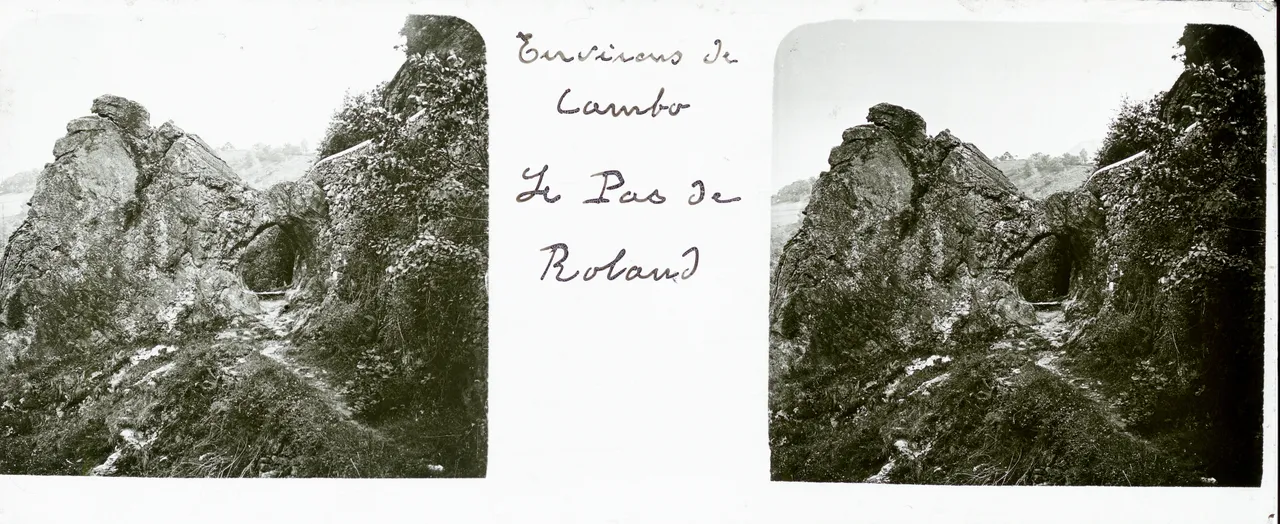 Environs de
Cambo
Le Pas de
Roland